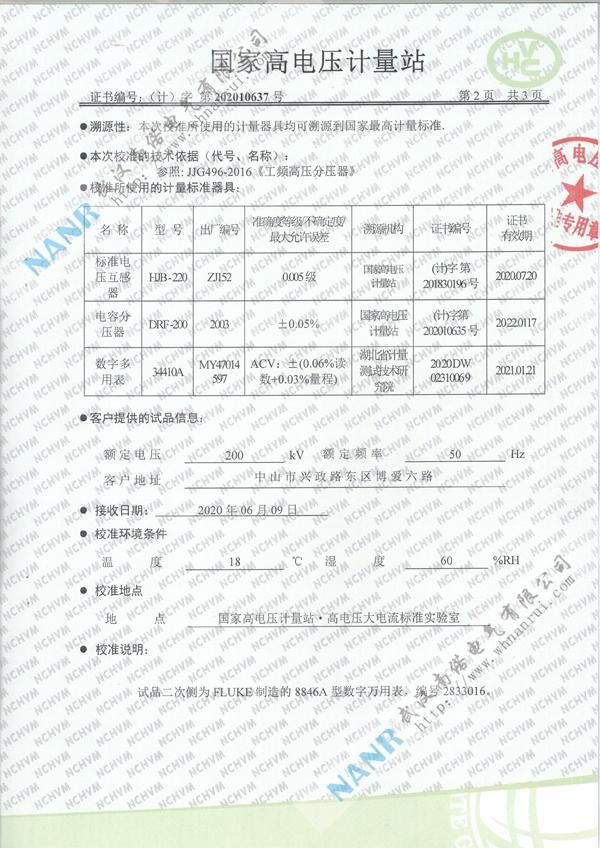 国家高电压计量站
证书编号:（计）字 第 202010637 号 第 2 页 共 3 页
●溯源性: 本次校准所使用的计量器具均可溯源到国家最高计量标准.
●本次校准的技术依据（代号、名称）:
参照: JJG496-2016《工频高压分压器》
●校准所使用的计量标准器具:
名 称 型 号 出厂编号 准确度等级/不确定度/最大允许误差 溯源机构 证书编号 证书有效期
标准电压互感器 HJB-220 ZJ152 0.005 级 国家高电压计量站 (计)字 第 201830196 号 2020.07.20
电容分压器 DRF-200 2003 ±0.05% 国家高电压计量站 (计)字第 202010635 号 2022.01.17
数字多用表 34410A MY47014597 ACV: ±(0.06%读数+0.03%量程) 湖北省计量测试技术研究院 2020DW02310069 2021.01.21
●客户提供的试品信息:
额定电压 200 kV 额定频率 50 Hz
客户地址 中山市兴政路东区博爱六路
● 接收日期: 2020 年 06 月 09 日
● 校准环境条件
温 度 18 ℃ 湿 度 60 %RH
● 校准地点
地 点 国家高电压计量站·高电压大电流标准实验室
● 校准说明:
试品二次侧为 FLUKE 制造的 8846A 型数字万用表，编号 2833016。
高电压
专用章
NANR 武汉南偌电气有限公司
http://www.whnanrui.com
NANR 武汉南偌电气有限公司
http://www.whnanrui.com
NCHVM